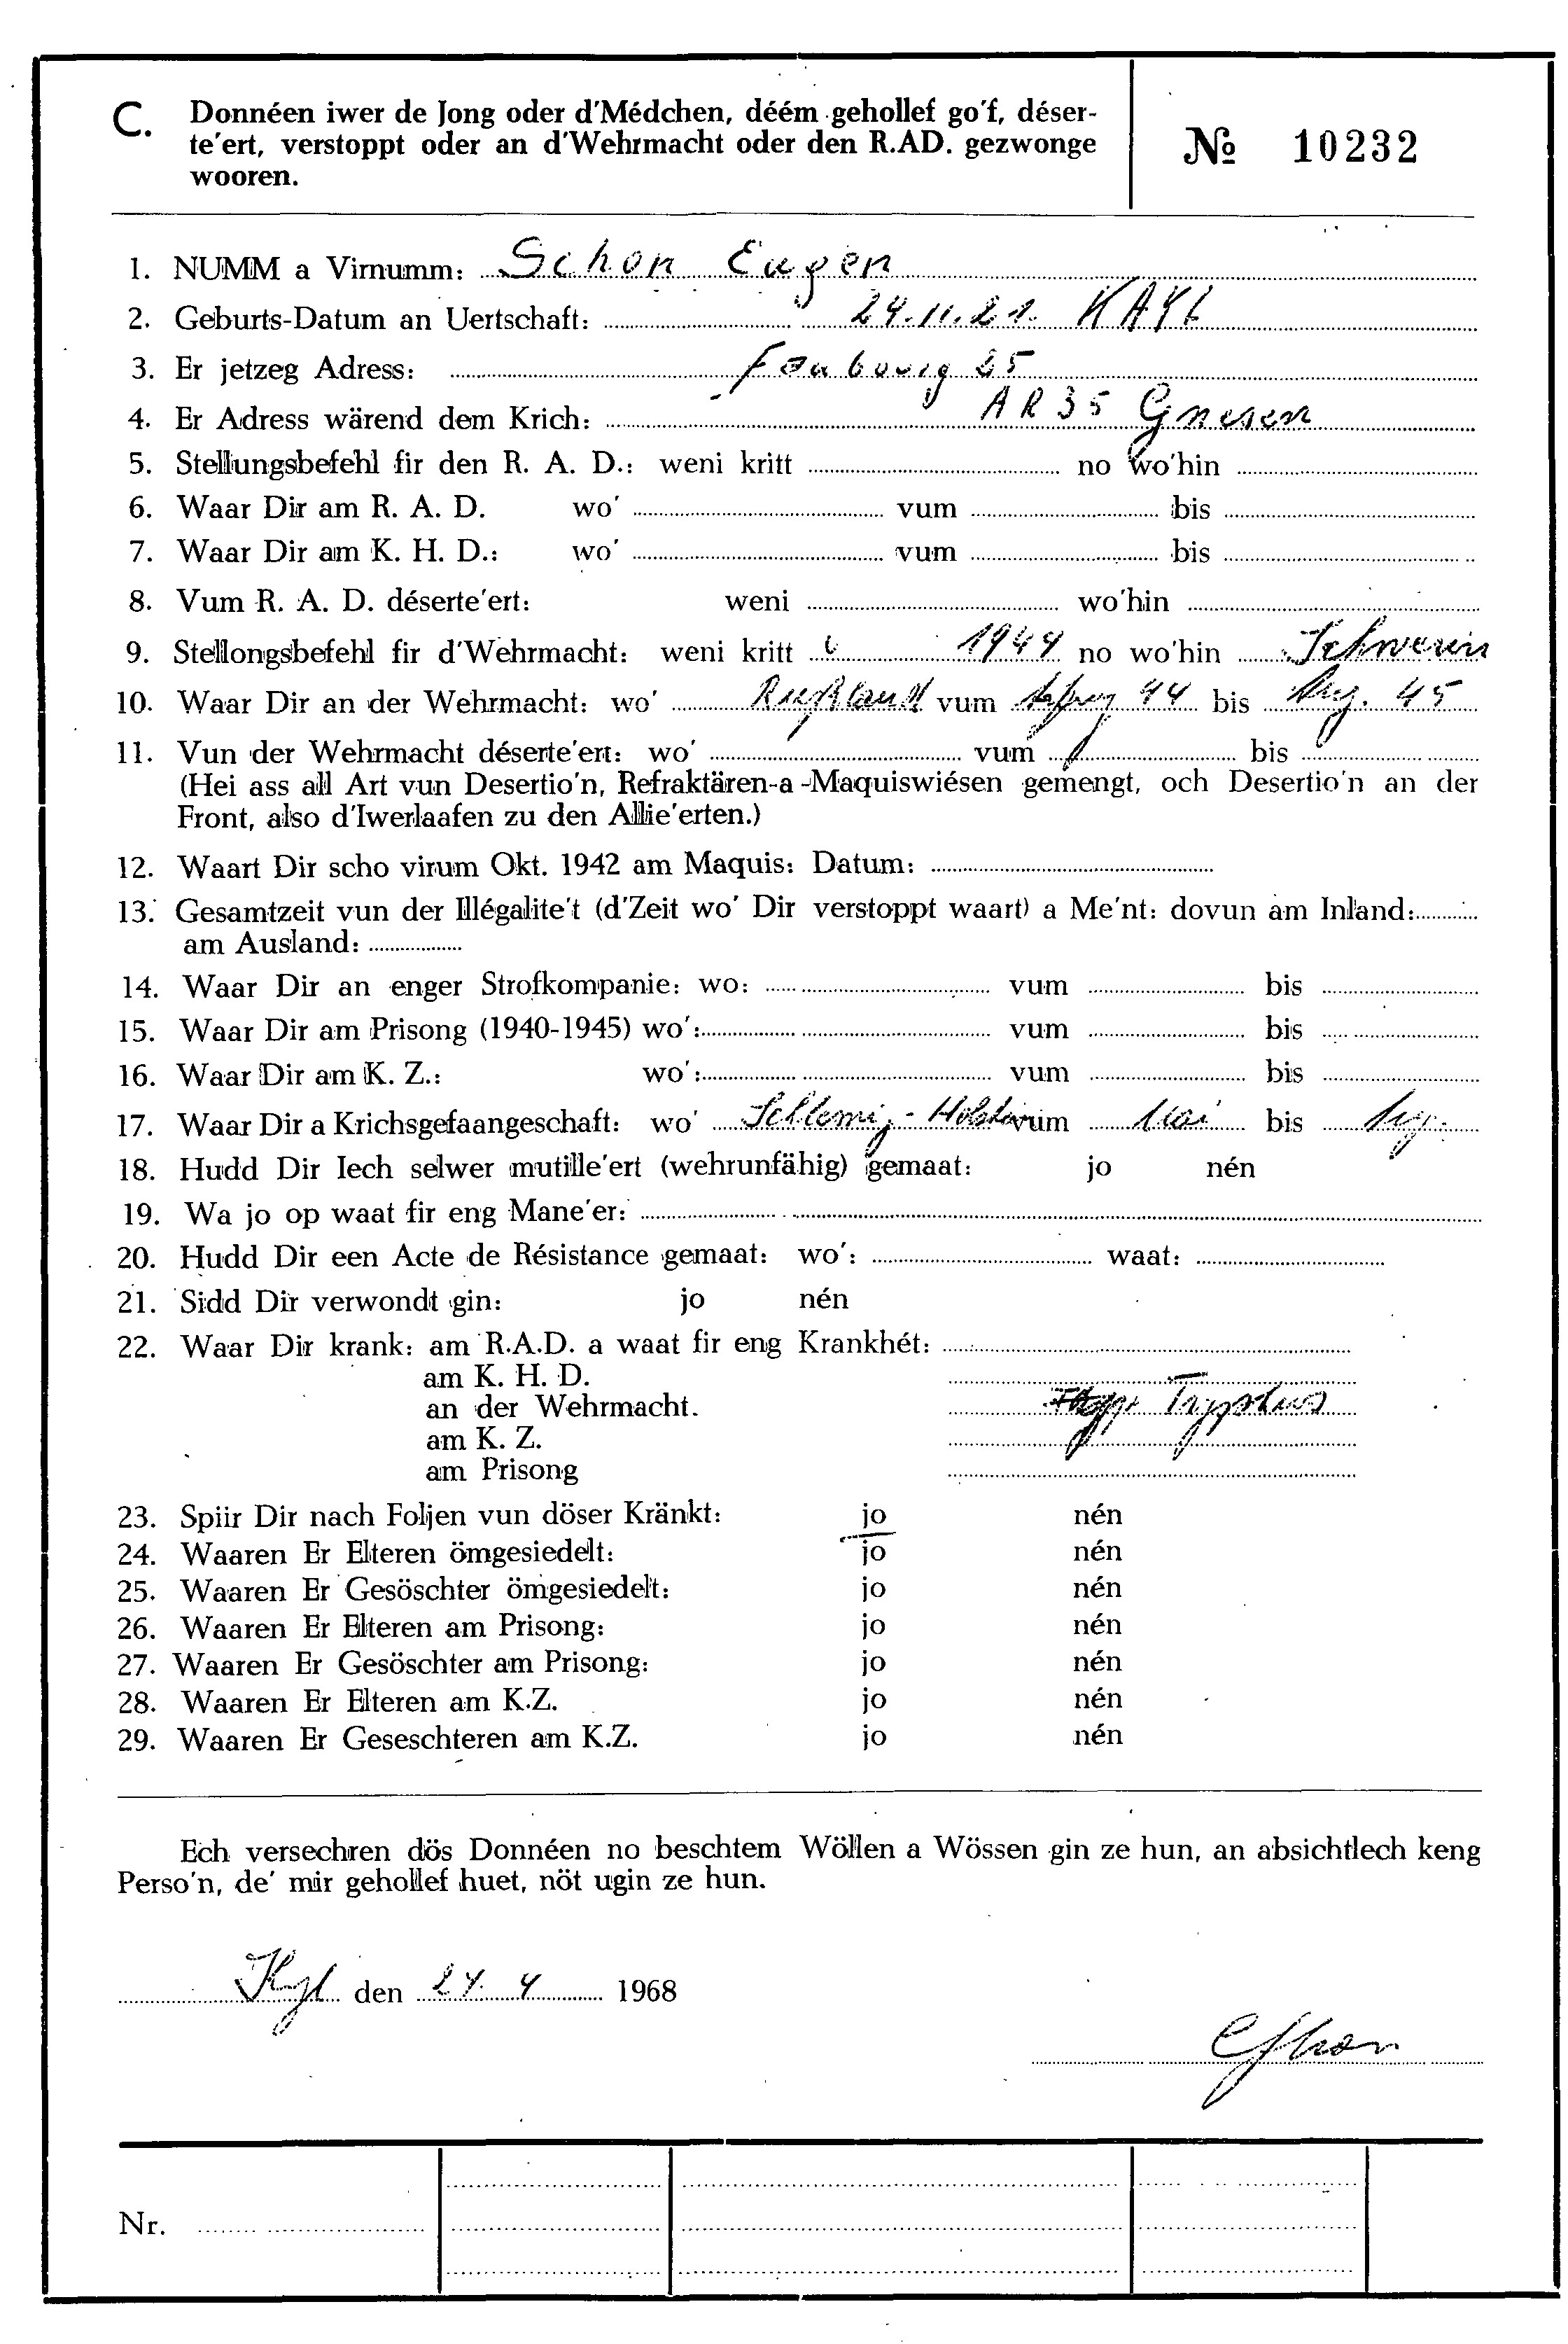 C. Donnéen iwer de Jong oder d'Médchen, déém gehollef go'f, déser-
te'ert, verstoppt oder an d'Wehrmacht oder den R.AD. gezwonge
wooren.
№ 10232
1. NUMM a Virnumm: Schon Eugen
2. Geburts-Datum an Uertschaft: 24.11.21. KAYL
3. Er jetzeg Adress: Faubourg 25
4. Er Adress wärend dem Krich: AR 35 Gnesen
5. Stellungsbefehl fir den R. A. D.: weni kritt no wo'hin
6. Waar Dir am R. A. D. wo' vum bis
7. Waar Dir am K. H. D.: wo' vum bis
8. Vum R. A. D. déserte'ert: weni wo'hin
9. Stellongsbefehl fir d'Wehrmacht: weni kritt 1944 no wo'hin Schwerin
10. Waar Dir an der Wehrmacht: wo' Rußland vum 44 bis Aug. 45
11. Vun der Wehrmacht déserte'ert: wo' vum bis
(Hei ass all Art vun Desertio'n, Refraktären-a-Maquiswiésen gemengt, och Desertio'n an der
Front, also d'Iwerlaafen zu den Allie'erten.)
12. Waart Dir scho virum Okt. 1942 am Maquis: Datum:
13. Gesamtzeit vun der Illégalite't (d'Zeit wo' Dir verstoppt waart) a Me'nt: dovun am Inland:
am Ausland:
14. Waar Dir an enger Strofkompanie: wo: vum bis
15. Waar Dir am Prisong (1940-1945) wo': vum bis
16. Waar Dir am K. Z.: wo': vum bis
17. Waar Dir a Krichsgefaangeschaft: wo' Schleswig-Holstein vum Mai bis Aug.
18. Hudd Dir Iech selwer mutille'ert (wehrunfähig) gemaat: jo nén
19. Wa jo op waat fir eng Mane'er:
20. Hudd Dir een Acte de Résistance gemaat: wo': waat:
21. Sidd Dir verwondt gin: jo nén
22. Waar Dir krank: am R.A.D. a waat fir eng Krankhét:
am K. H. D.
an der Wehrmacht. Typhus
am K. Z.
am Prisong
23. Spiir Dir nach Foljen vun döser Kränkt: jo nén
24. Waaren Er Elteren ömgesiedelt: jo nén
25. Waaren Er Gesöschter ömgesiedelt: jo nén
26. Waaren Er Elteren am Prisong: jo nén
27. Waaren Er Gesöschter am Prisong: jo nén
28. Waaren Er Elteren am K.Z. jo nén
29. Waaren Er Geseschteren am K.Z. jo nén
Ech versechren dös Donnéen no beschtem Wöllen a Wössen gin ze hun, an absichtlech keng
Perso'n, de' mir gehollef huet, nöt ugin ze hun.
Kayl den 24. 4 1968
ESchon
Nr.